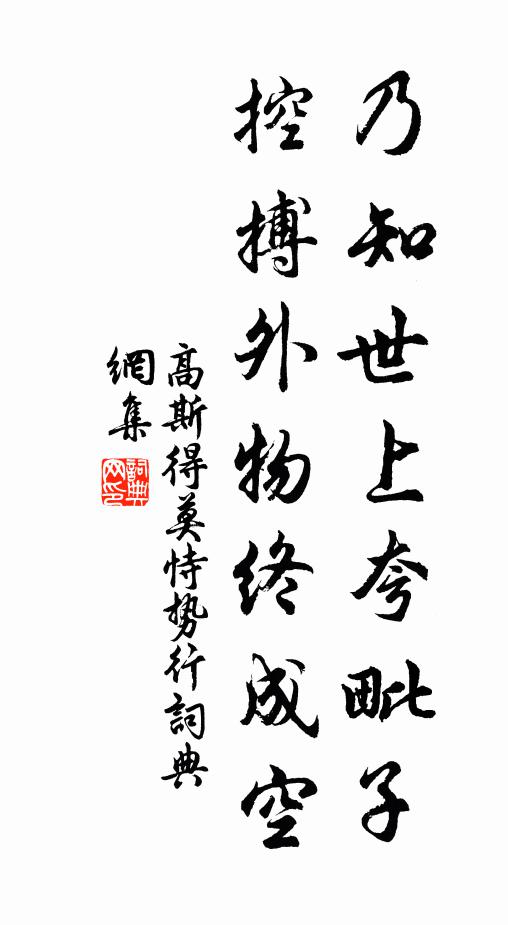 乃知世上夸毗子
控搏外物终成空
高斯得莫恃势行詞典
網集
詞典网印